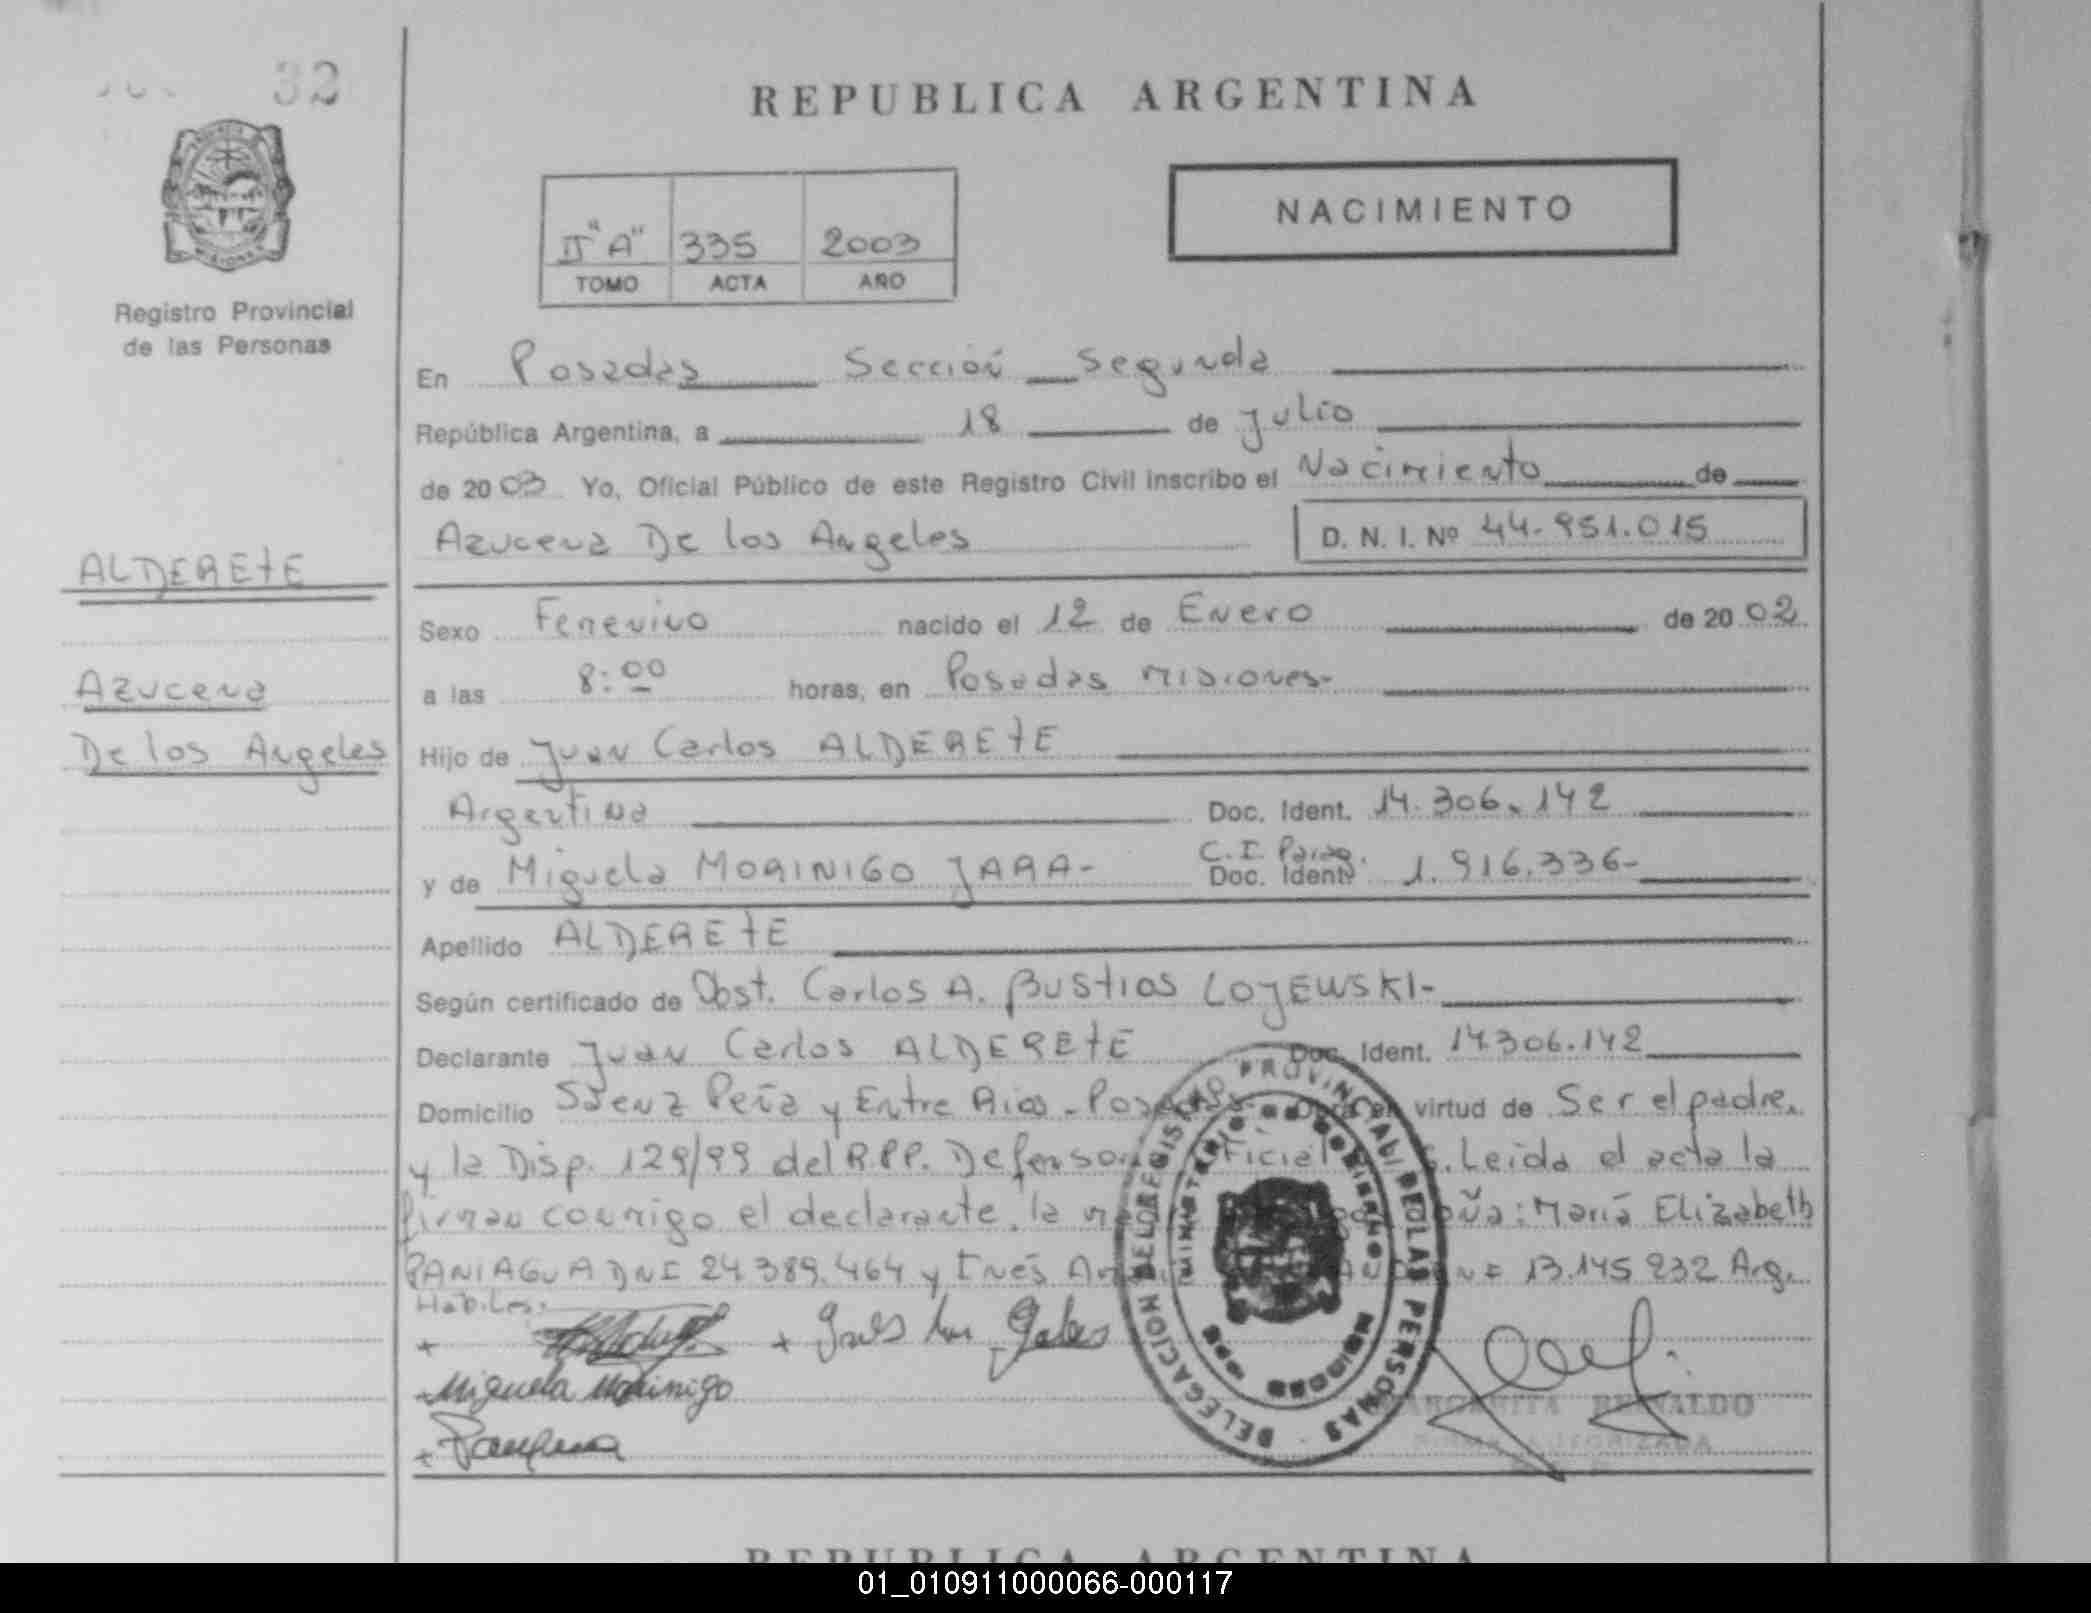 32
REPUBLICA ARGENTINA
NACIMIENTO
II "A" 335 2003
TOMO ACTA AÑO
Registro Provincial
de las Personas
En Posadas Sección Segunda
República Argentina, a 18 de Julio
de 2003 Yo, Oficial Público de este Registro Civil inscribo el Nacimiento de
Azucena De los Angeles D. N. I. Nº 44.951.015
ALDERETE
Sexo Femenino nacido el 12 de Enero de 2002
Azucena
a las 8:00 horas, en Posadas Misiones-
De los Angeles
Hijo de Juan Carlos ALDERETE
Argentina Doc. Ident. 14.306.142
y de Miguela MORINIGO JARA- C.I. Parag. Doc. Ident. 1.916.336-
Apellido ALDERETE
Según certificado de Obst. Carlos A. BUSTIOS LOJEWSKI-
Declarante Juan Carlos ALDERETE Doc. Ident. 14.306.142
Domicilio Sáenz Peña y Entre Rios - Posadas Obra en virtud de Ser el padre.
y la Disp. 129/99 del R.P.P. Leida el acta la
firman conmigo el declarante, la María Elizabeth
PANIAGUA DNI 24.389.464 y Inés 13.145.232 Arg.
Hábiles.
Miguela Morinigo
DELEGACION DEL REGISTRO PROVINCIAL DE LAS PERSONAS
MINISTERIO DE GOBIERNO
MISIONES
MARGARITA REINALDO
FIRMA AUTORIZADA
REPUBLICA ARGENTINA
01_010911000066-000117